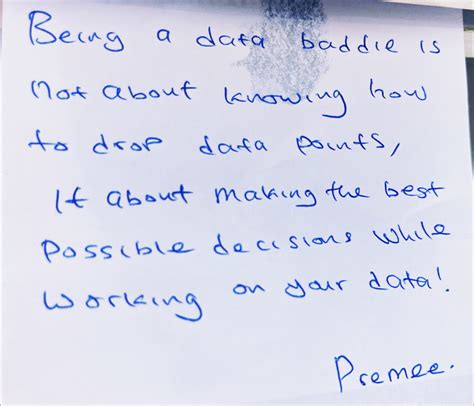 Being a data baddie is
not about knowing how
to drop data points,
It about making the best
possible decisions while
working on your data!
Premee.